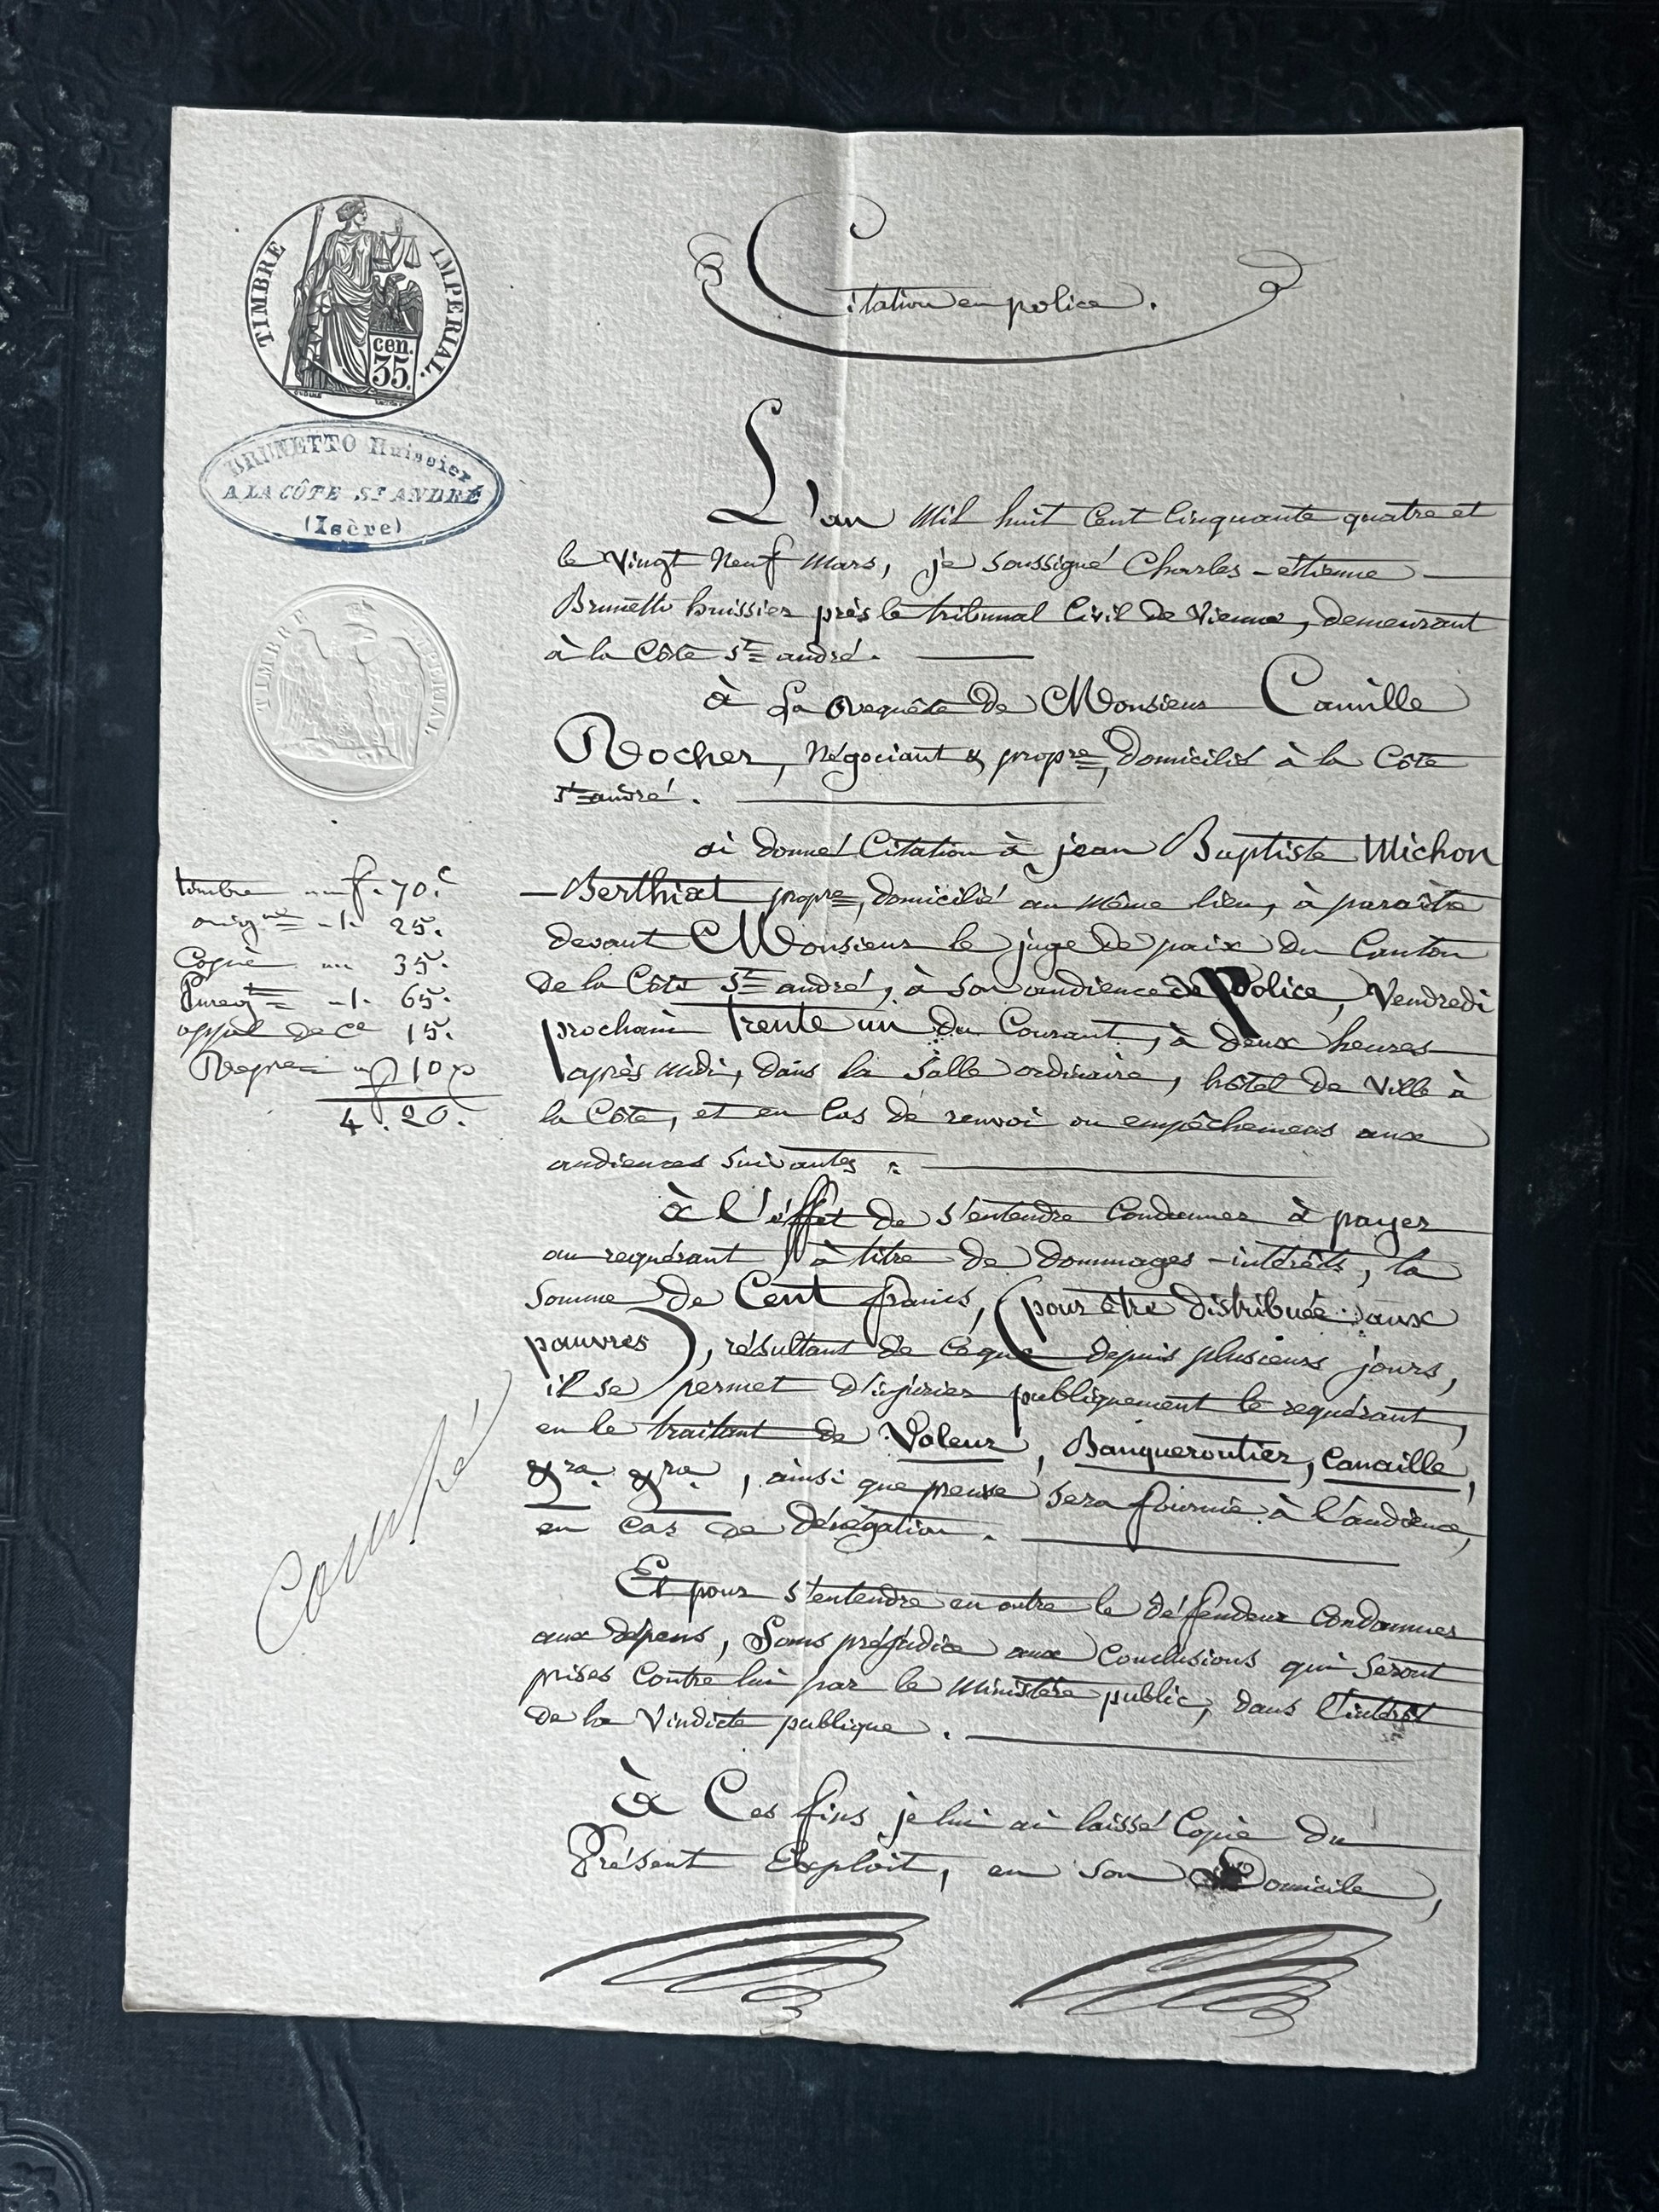 Citation en police.
TIMBRE IMPERIAL.
cen.
35.
BRUNETTO Huissier
A LA CÔTE St ANDRÉ
(Isère)
TIMBRE IMPERIAL
L'an mil huit cent cinquante quatre et
le vingt neuf mars, je soussigné Charles-ettienne
Brunetto huissier près le tribunal Civil de Vienne, demeurant
à la Côte St andré.
à La Requête de Monsieur Camille
Rocher, négociant & propre, domicilié à la Côte
St andré.
ai donné Citation à jean Baptiste Michon
-Berthiat propre, domicilié au même lieu, à paraître
devant Monsieur le juge de paix du Canton
de la Côte St andré, à son audience de Police, Vendredi
prochain trente un du Courant, à deux heures
après midi, dans la salle ordinaire, hôtel de Ville à
la Côte, et en cas de renvoi ou empêchemens aux
audiences suivantes :
à l'effet de s'entendre Condamner à payer
au requérant, à titre de dommages-intérêts, la
somme de Cent francs, (pour être distribuée aux
pauvres), résultant de ce que depuis plusieurs jours,
il se permet d'injurier publiquement le requérant,
en le traitant de Voleur, Banqueroutier, Canaille,
&ra &ra, ainsi que preuve sera fournie à l'audience,
en cas de dénégation.
Et pour s'entendre en outre le défendeur Condamner
aux dépens, Sans préjudice aux Conclusions qui seront
prises Contre lui par le ministère public, dans l'intérêt
de la Vindicte publique.
à Ces fins je lui ai laissé Copie du
Présent Exploit, en son Domicile,
timbre f. 70.c
orignal 1. 25.
Copie 35.
Enregt 1. 65.
appel de ce 15.
Repre 10
4. 20.